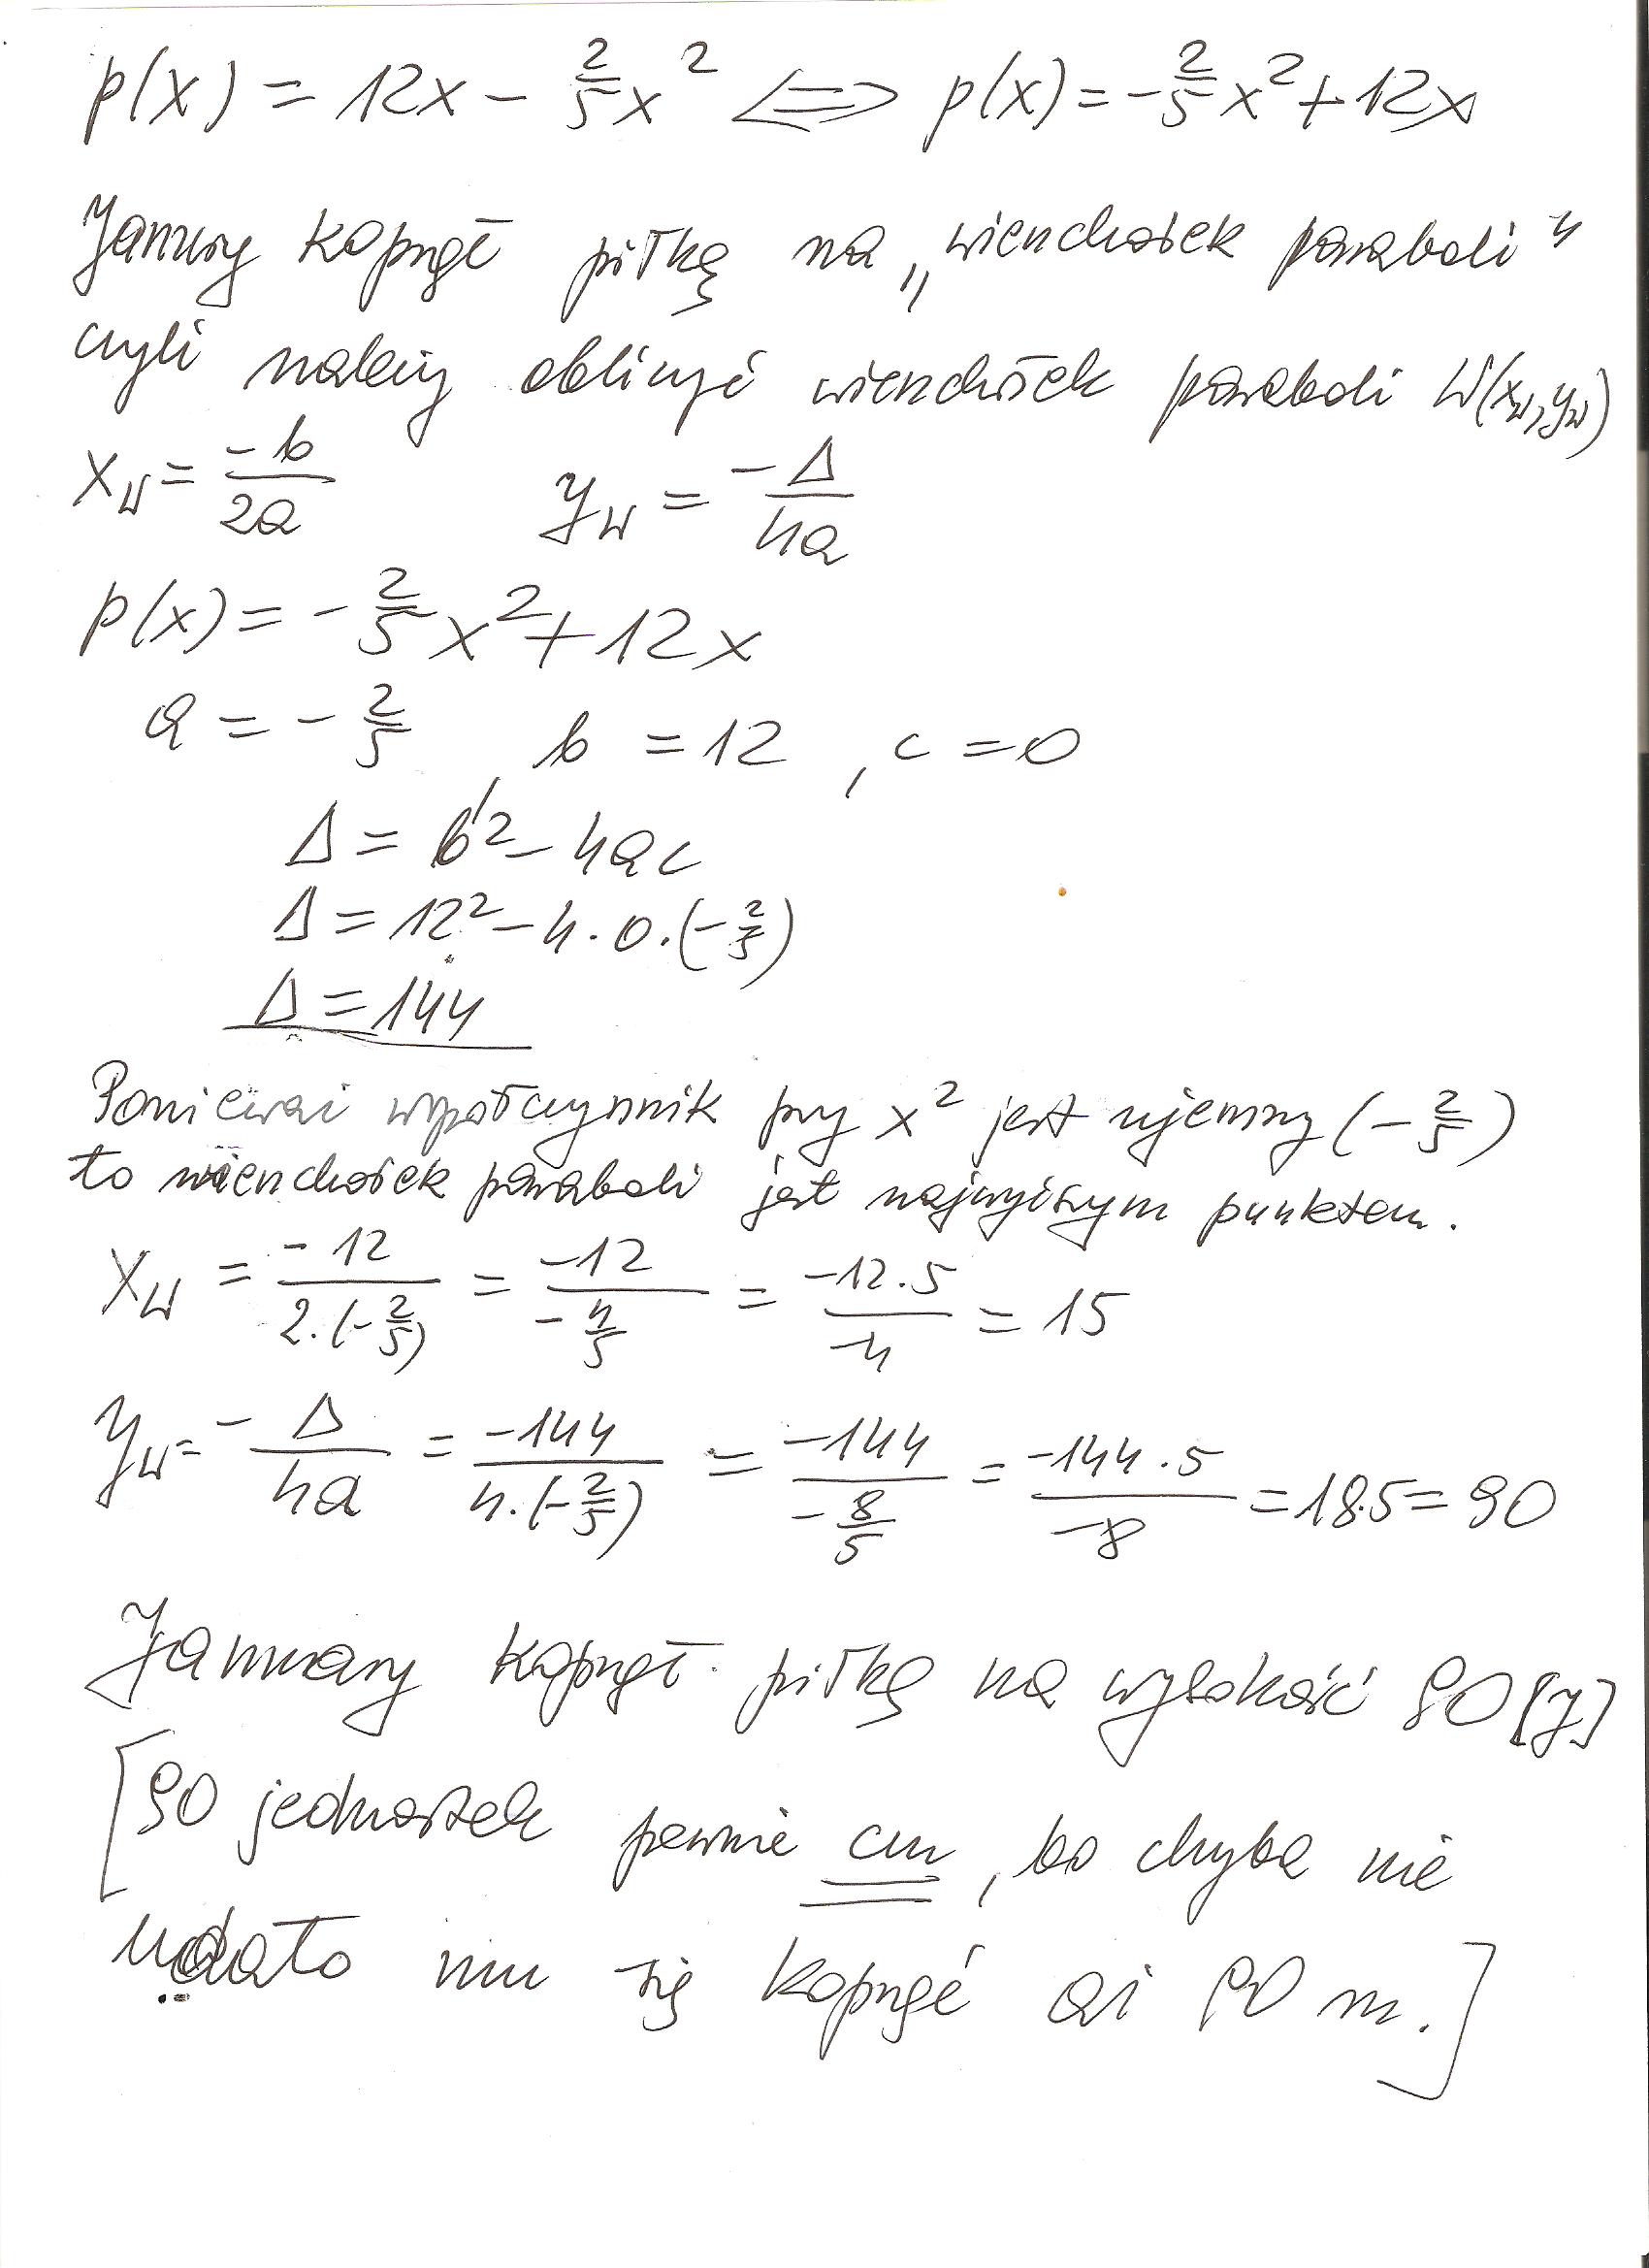 p(x) = 12x - 2/5 x² <=> p(x) = -2/5 x² + 12x
Janusz kopnął piłkę na „wierzchołek paraboli”
czyli należy obliczyć wierzchołek paraboli W(xw, yw)
xw = -b/2a yw = -Δ/4a
p(x) = -2/5 x² + 12x
a = -2/5, b = 12, c = 0
Δ = b² - 4ac
Δ = 12² - 4·0·(-2/5)
Δ = 144
Ponieważ współczynnik przy x² jest ujemny (-2/5)
to wierzchołek paraboli jest najwyższym punktem.
xw = -12/2·(-2/5) = -12/-4/5 = -12·5/-4 = 15
yw = -Δ/4a = -144/4·(-2/5) = -144/-8/5 = -144·5/-8 = 18·5 = 90
kopnął piłkę na wysokość 90 [y]
[90 jednostek pewnie cm, bo chyba nie
udało mu się kopnąć aż 90 m.]